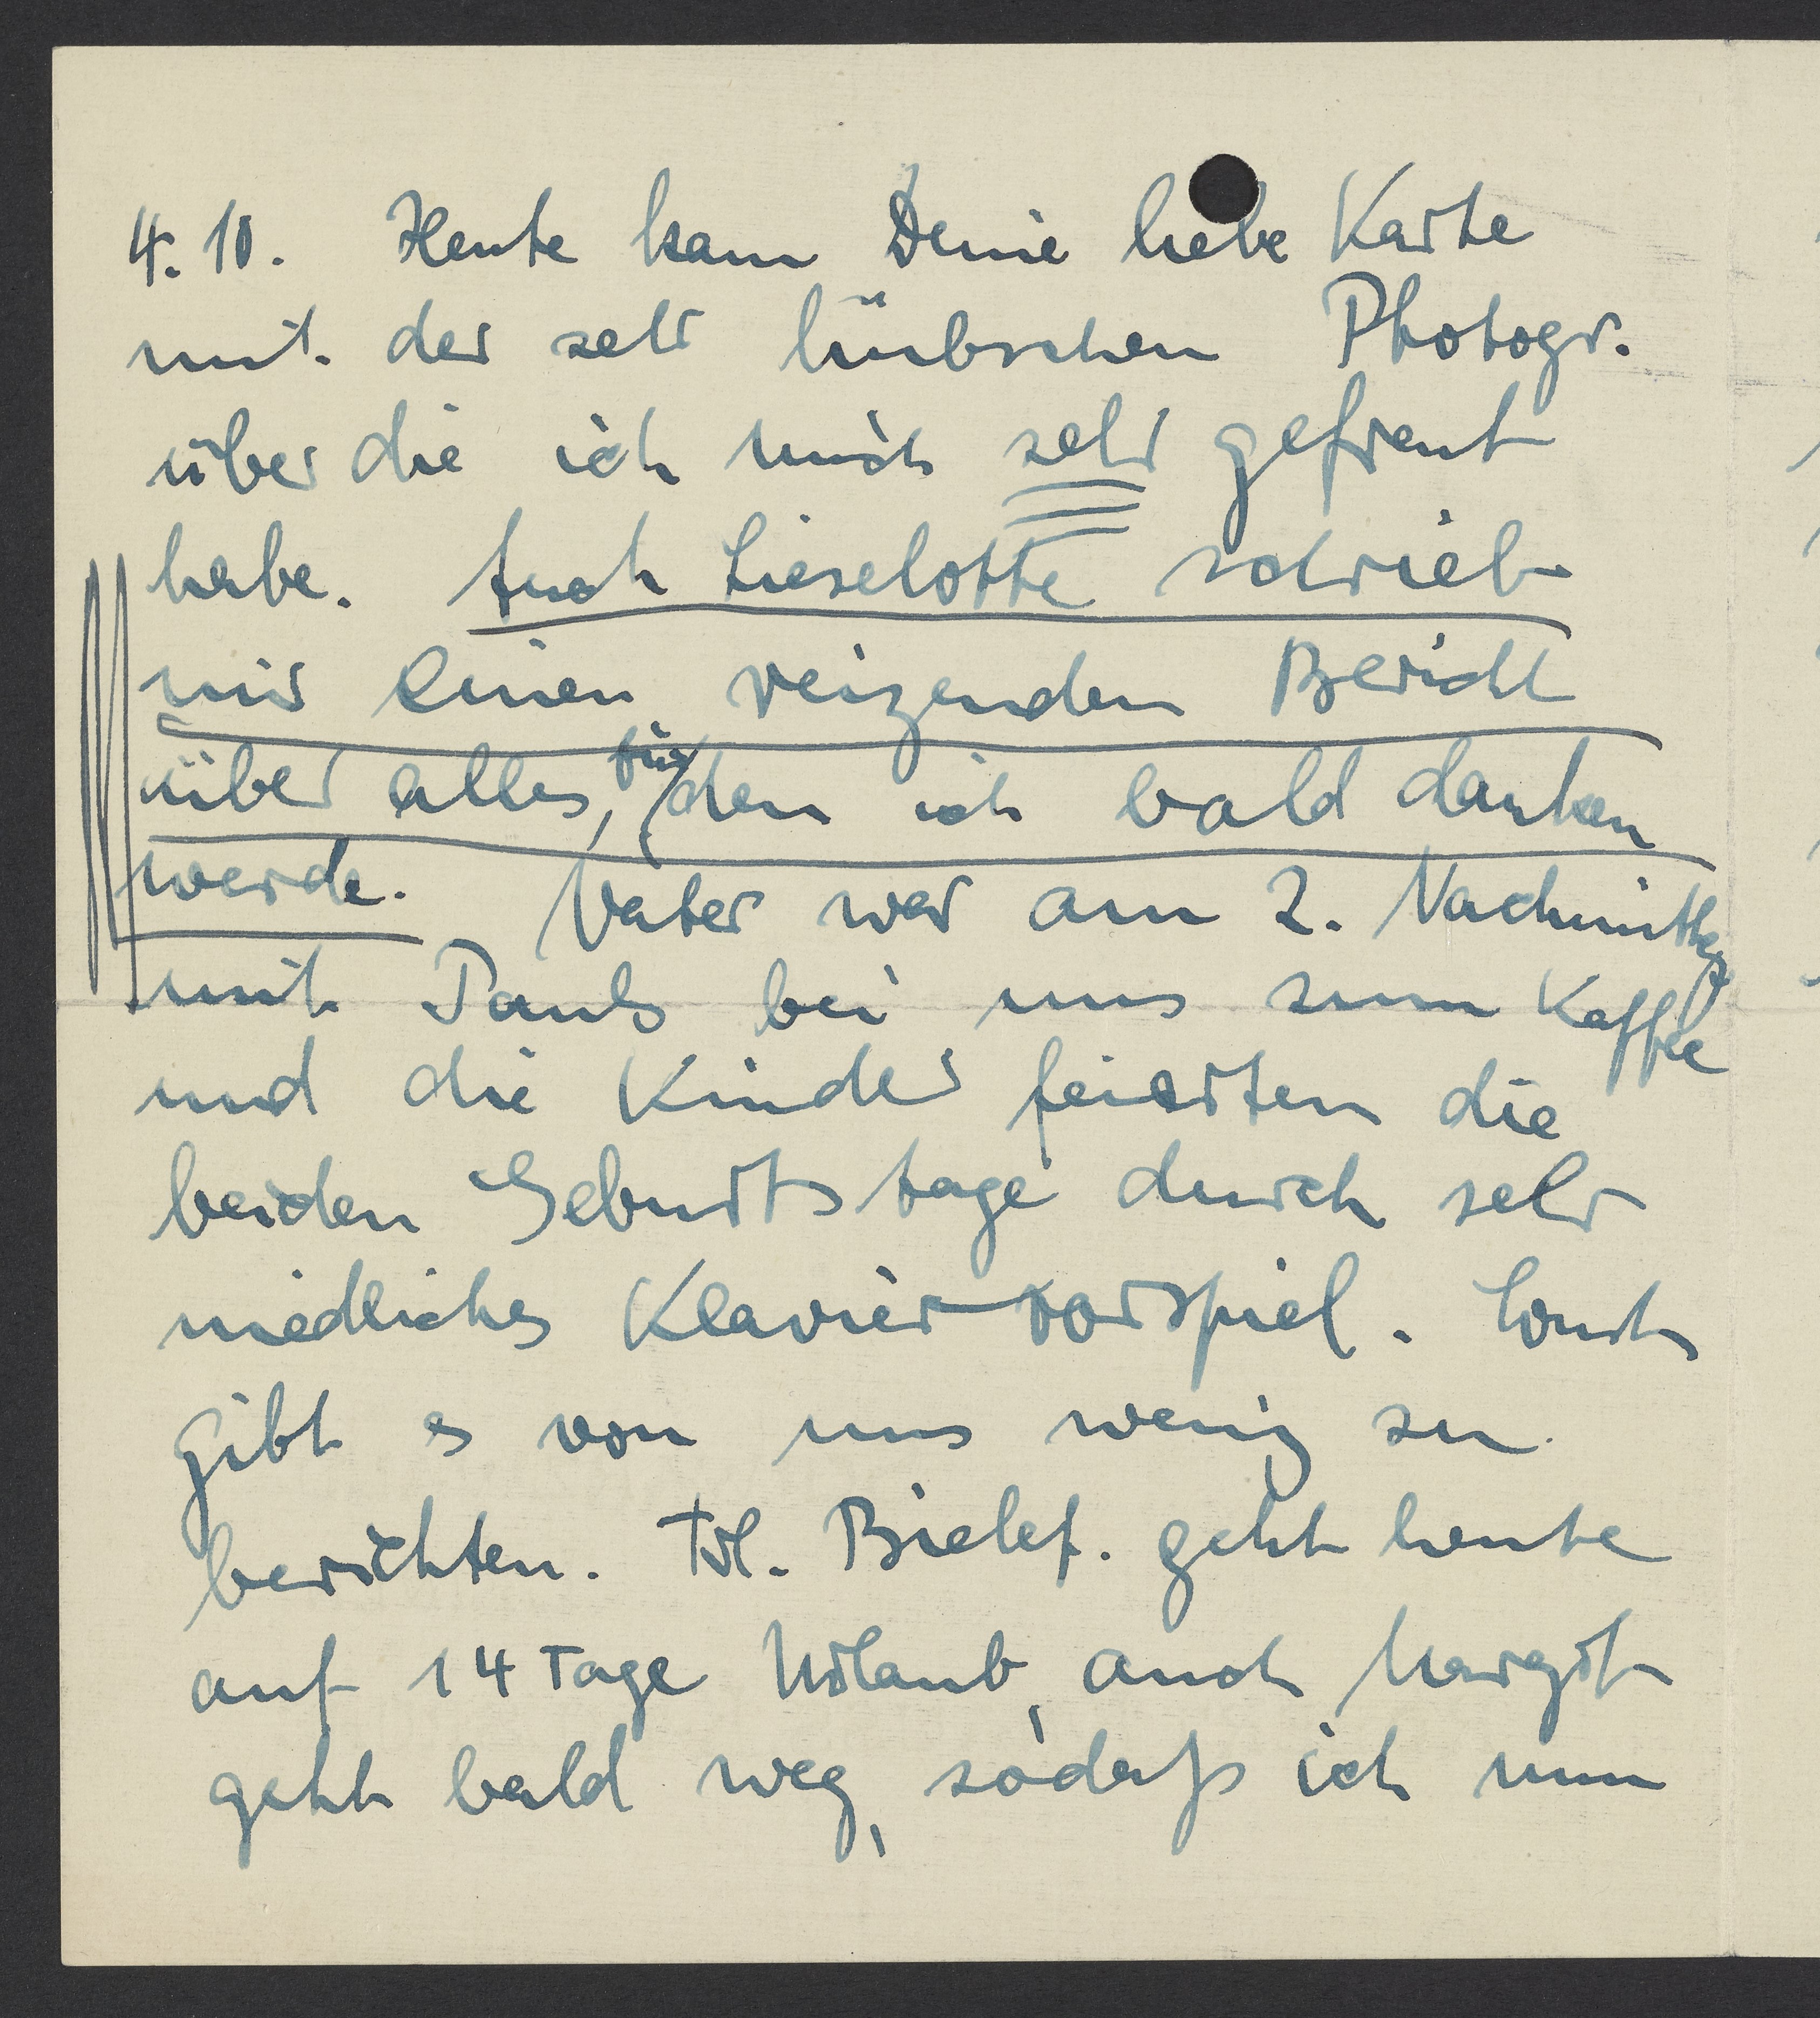 4. 10. Heute kam Deine liebe Karte
mit der sehr hübschen Photogr.
über die ich mich sehr gefreut
habe. Auch Lieselotte schrieb
mir einen reizenden Bericht
über alles, für den ich bald danken
werde. Vater war am 2. Nachmittag
mit Pauls bei uns zum Kaffee
und die Kinder feierten die
beiden Geburtstage durch sehr
niedliches Klaviervorspiel. Sonst
gibt es von uns wenig zu
berichten. Frl. Bielef. geht heute
auf 14 Tage Urlaub, auch Margot
geht bald weg, sodaß ich nun